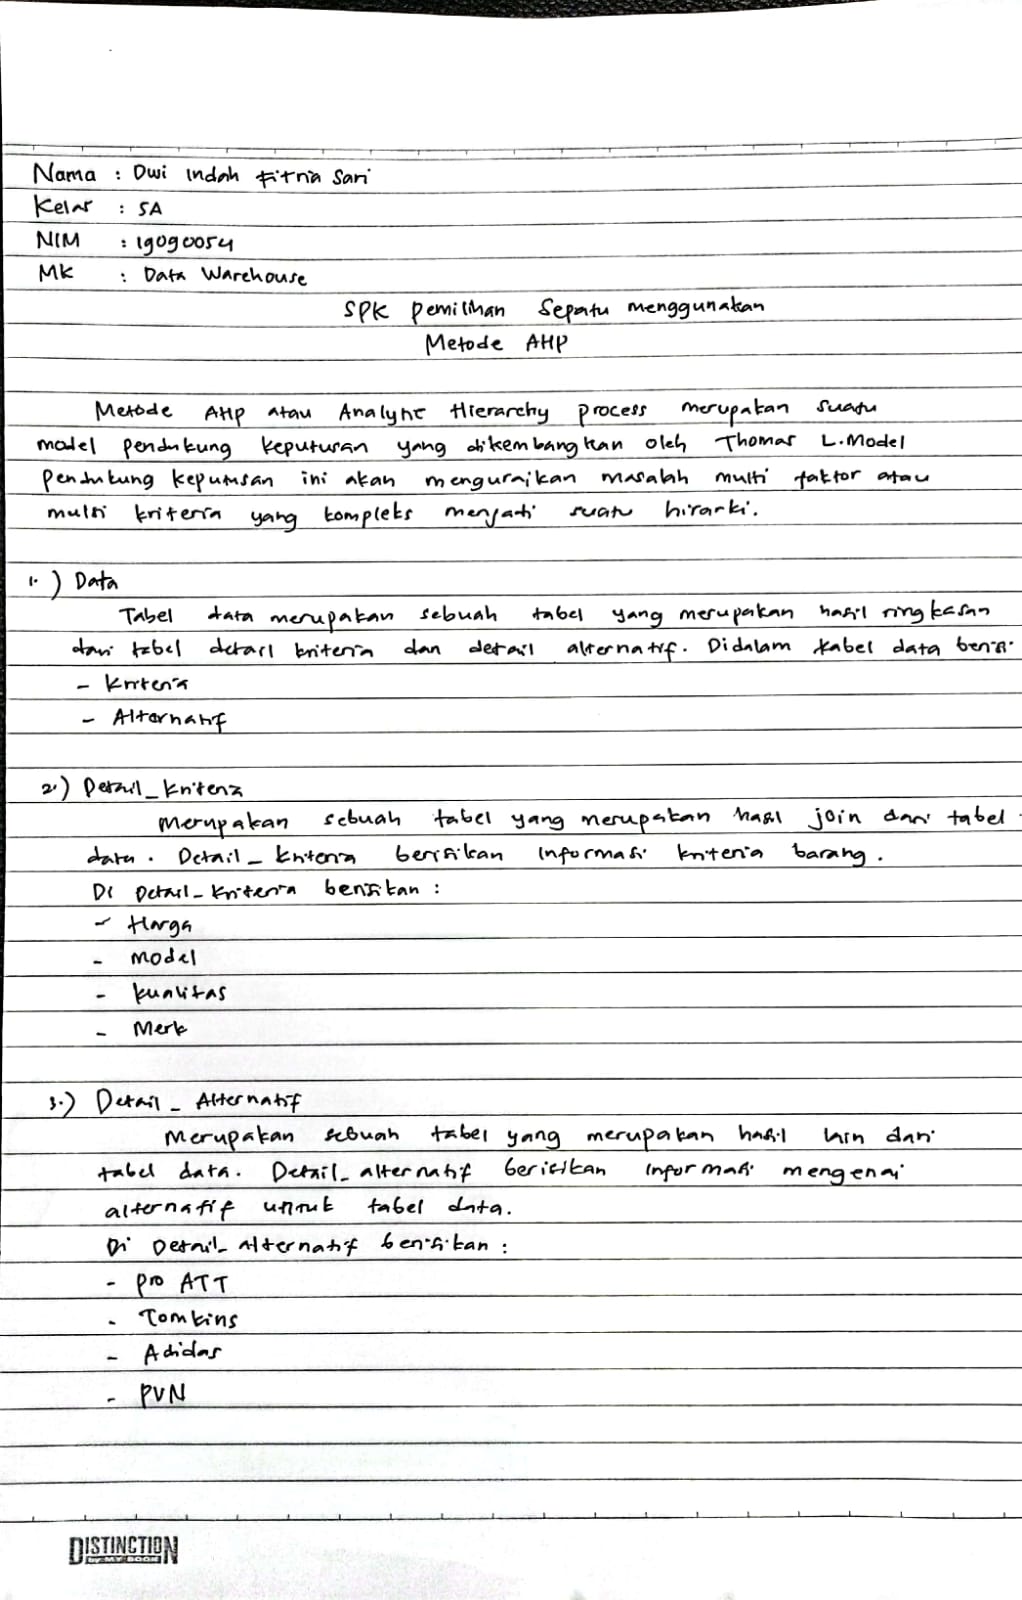 Nama : Dwi Indah Fitria Sari
Kelas : 5A
NIM : 19090054
MK : Data Warehouse
SPK pemilihan Sepatu menggunakan
Metode AHP
Metode AHP atau Analytic Hierarchy process merupakan suatu
model pendukung keputusan yang dikembangkan oleh Thomas L. Model
pendukung keputusan ini akan menguraikan masalah multi faktor atau
multi kriteria yang kompleks menjadi suatu hirarki.
1.) Data
Tabel data merupakan sebuah tabel yang merupakan hasil ringkasan
dari tabel detail kriteria dan detail alternatif. Didalam tabel data berisi
- Kriteria
- Alternatif
2.) Detail_Kriteria
Merupakan sebuah tabel yang merupakan hasil join dari tabel
data. Detail_kriteria berisikan informasi kriteria barang.
Di Detail_kriteria berisikan :
- Harga
- Model
- kualitas
- Merk
3.) Detail_Alternatif
Merupakan sebuah tabel yang merupakan hasil lain dari
tabel data. Detail_alternatif berisikan informasi mengenai
alternatif untuk tabel data.
Di Detail_alternatif berisikan :
- pro ATT
- Tomkins
- Adidas
- PVN
DISTINCTION
by MY BOOK